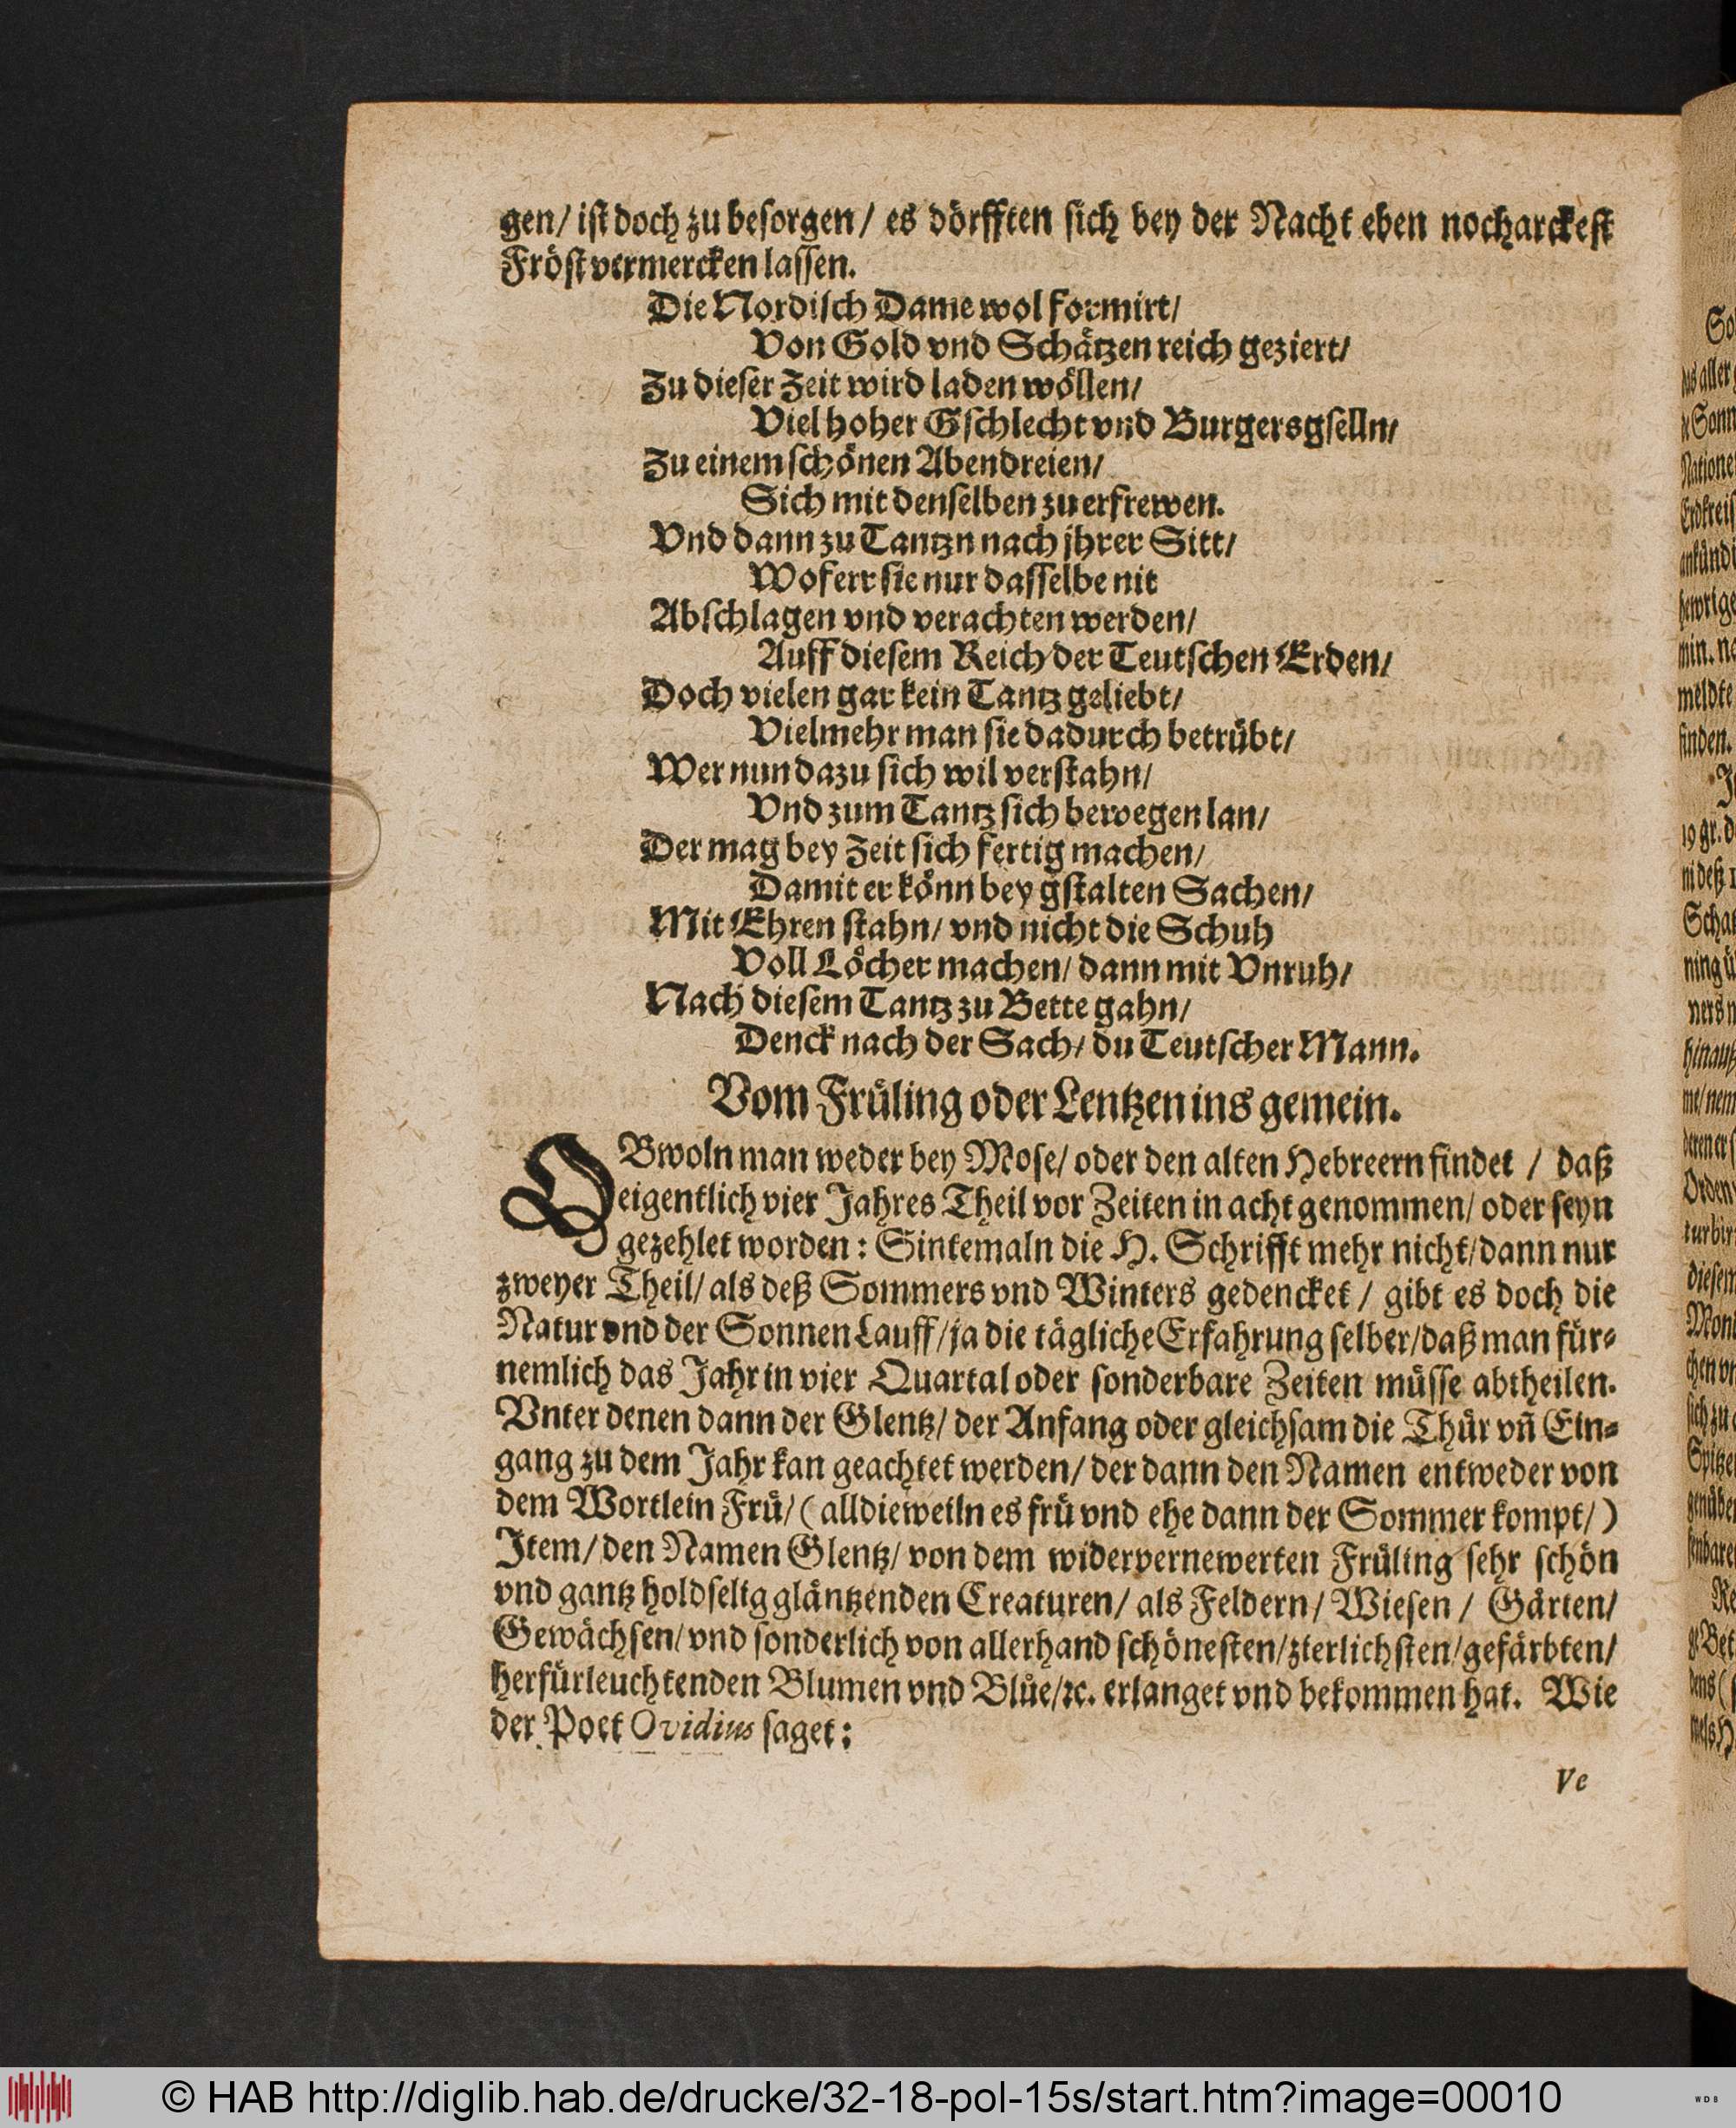 gen/ ist doch zu besorgen/ es dörfften sich bey der Nacht eben noch arckest
Fröst vermercken lassen.
Die Nordisch Dame wol formirt/
Von Gold vnd Schätzen reich geziert/
Zu dieser Zeit wird laden wöllen/
Viel hoher Gschlecht vnd Burgersgselln/
Zu einem schönen Abendreien/
Sich mit denselben zu erfrewen.
Vnd dann zu Tantzn nach jhrer Sitt/
Woferr sie nur dasselbe nit
Abschlagen vnd verachten werden/
Auff diesem Reich der Teutschen Erden/
Doch vielen gar kein Tantz geliebt/
Vielmehr man sie dadurch betrübt/
Wer nun dazu sich wil verstahn/
Vnd zum Tantz sich bewegen lan/
Der mag bey Zeit sich fertig machen/
Damit er könn bey gstalten Sachen/
Mit Ehren stahn/ vnd nicht die Schuh
Voll Löcher machen/ dann mit Vnruh/
Nach diesem Tantz zu Bette gahn/
Denck nach der Sach/ du Teutscher Mann.
Vom Früling oder Lentzen ins gemein.
OBwoln man weder bey Mose/ oder den alten Hebreern findet / daß
eigentlich vier Jahres Theil vor Zeiten in acht genommen/ oder seyn
gezehlet worden: Sintemaln die H. Schrifft mehr nicht/ dann nur
zweyer Theil/ als deß Sommers vnd Winters gedencket / gibt es doch die
Natur vnd der Sonnen Lauff/ ja die tägliche Erfahrung selber/ daß man für-
nemlich das Jahr in vier Quartal oder sonderbare Zeiten müsse abtheilen.
Vnter denen dann der Glentz/ der Anfang oder gleichsam die Thür vñ Ein-
gang zu dem Jahr kan geachtet werden/ der dann den Namen entweder von
dem Wortlein Frü/ (alldieweiln es frü vnd ehe dann der Sommer kompt/)
Item/ den Namen Glentz/ von dem widervernewerten Früling sehr schön
vnd gantz holdselig gläntzenden Creaturen/ als Feldern/ Wiesen / Gärten/
Gewächsen/ vnd sonderlich von allerhand schönesten/ zierlichsten/ gefärbten/
herfürleuchtenden Blumen vnd Blüe/ ꝛc. erlanget vnd bekommen hat. Wie
der Poet Ovidius saget:
Ve
© HAB http://diglib.hab.de/drucke/32-18-pol-15s/start.htm?image=00010